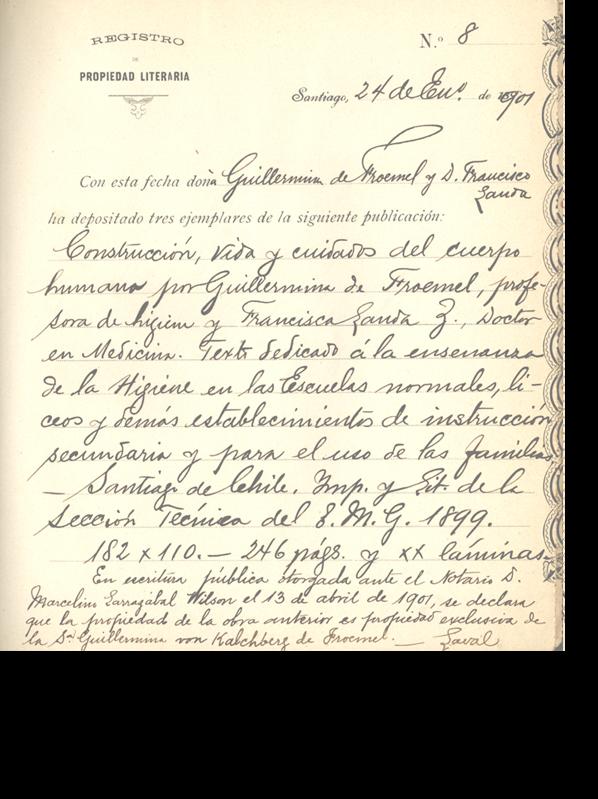 REGISTRO
DE
PROPIEDAD LITERARIA
N.º 8
Santiago, 24 de En.º de 1901
Con esta fecha doña Guillermina de Froemel y D. Francisco
Landa
ha depositado tres ejemplares de la siguiente publicación:
Construcción, vida y cuidados del cuerpo
humano por Guillermina de Froemel, profe-
sora de higiene y Francisco Landa Z., Doctor
en Medicina. Texto dedicado á la enseñanza
de la Higiene en las Escuelas normales, li-
ceos y demás establecimientos de instrucción
secundaria y para el uso de las familias.
— Santiago de Chile. Imp. y Lit. de la
Sección Técnica del E. M. G. 1899.
182 x 110. — 246 págs. y XX láminas.
En escritura pública otorgada ante el Notario D.
Marcelino Larrazábal Wilson el 13 de abril de 1901, se declara
que la propiedad de la obra anterior es propiedad exclusiva de
la Sra. Guillermina von Kalchberg de Froemel. — Laval